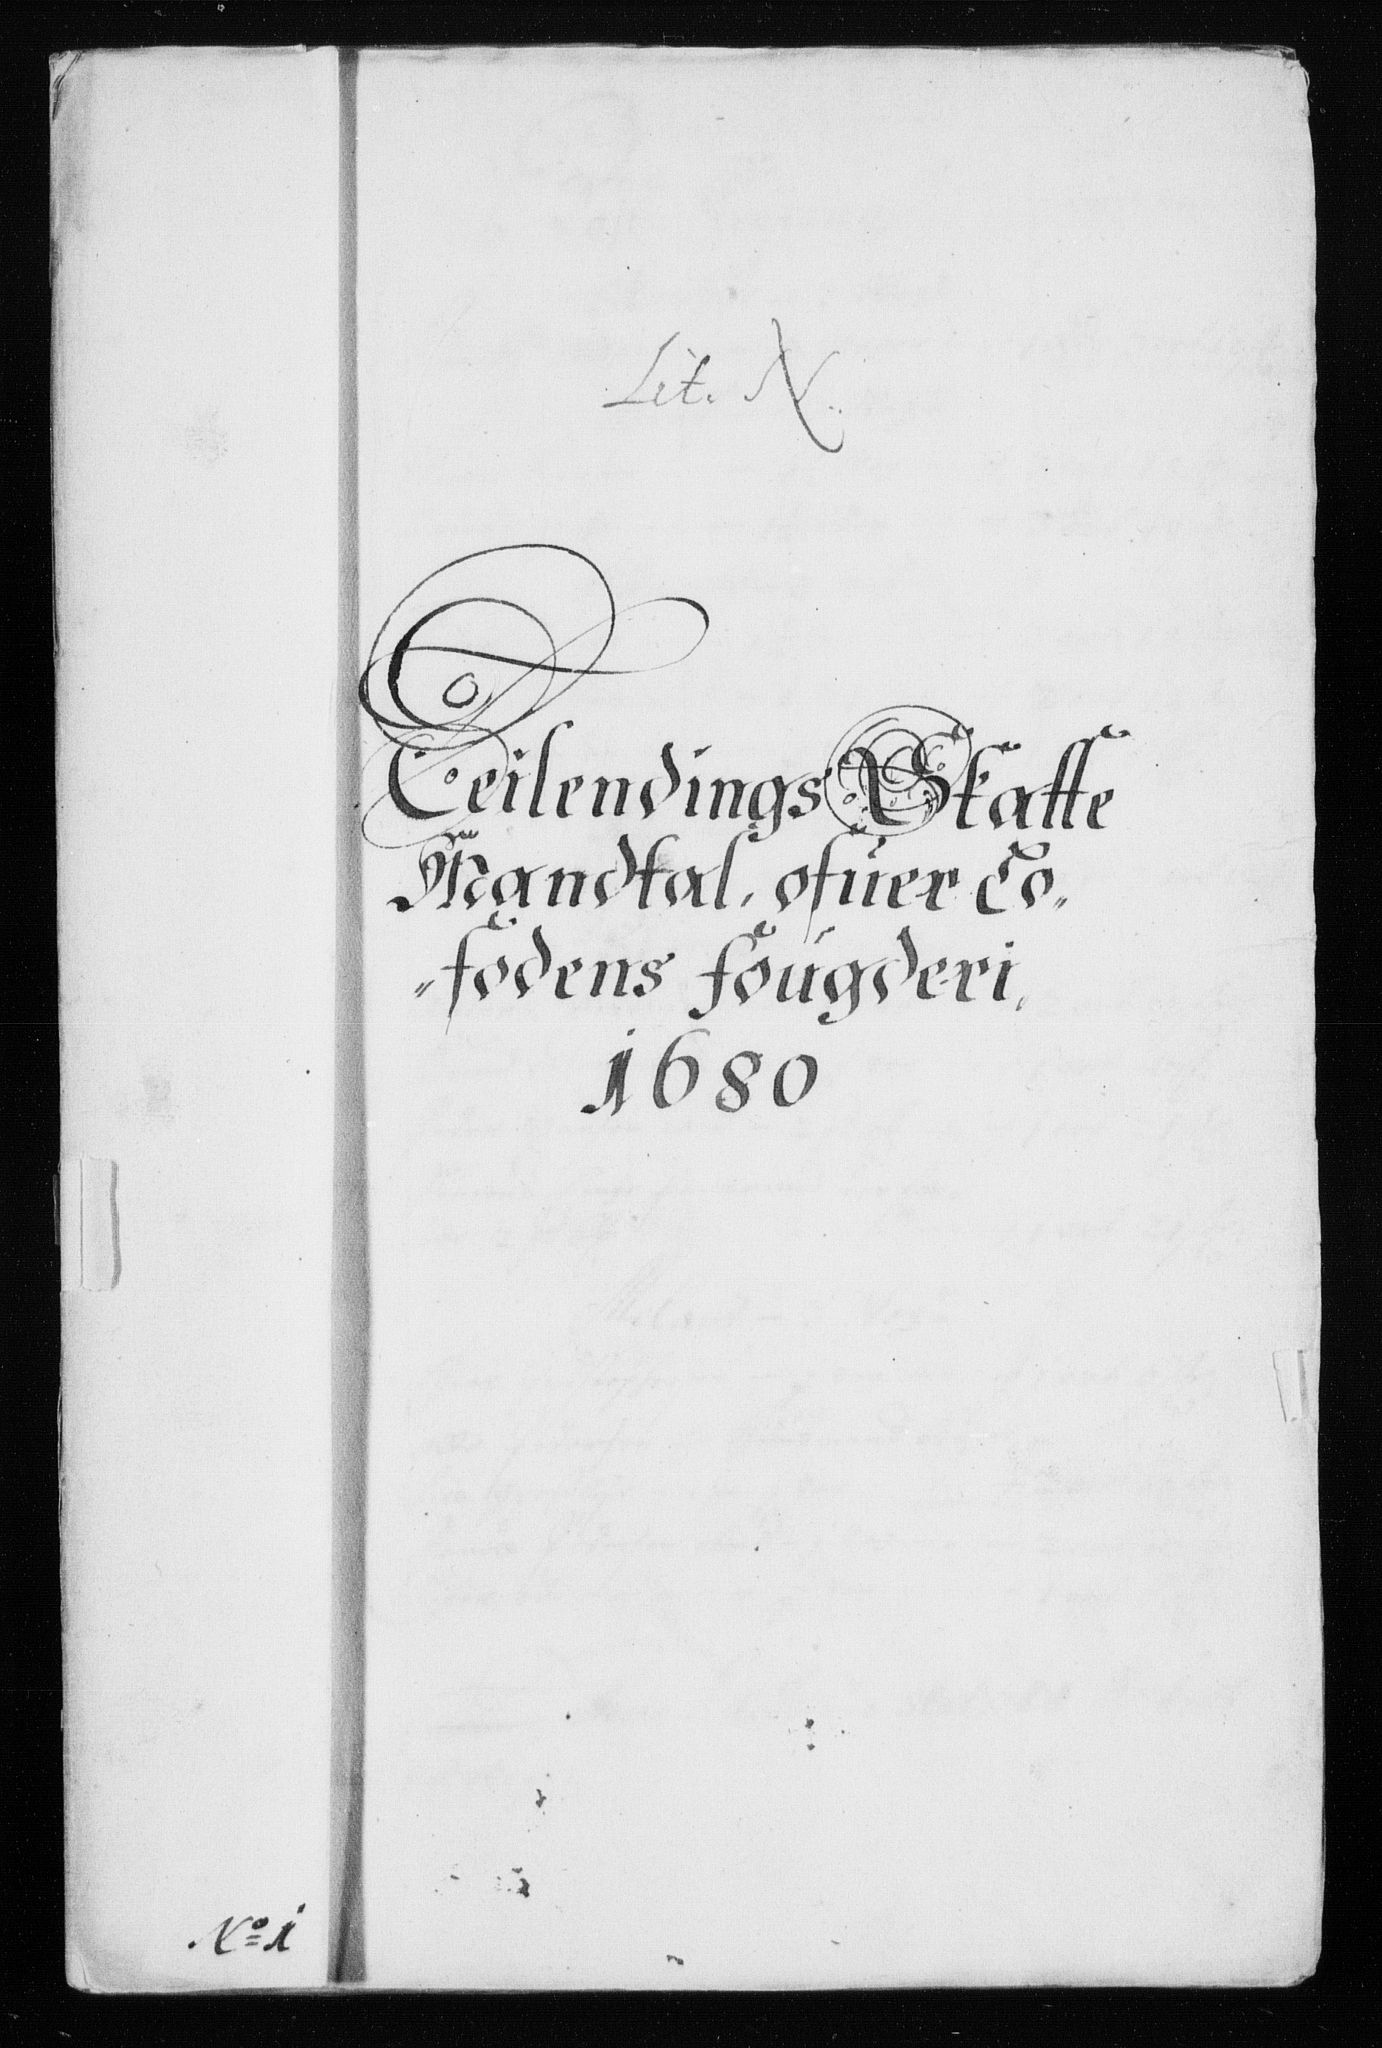 Lit. N.
Leilendings Skatte
Mandtal, ofuer Lo„
„fodens fougderi,
1680
No 1